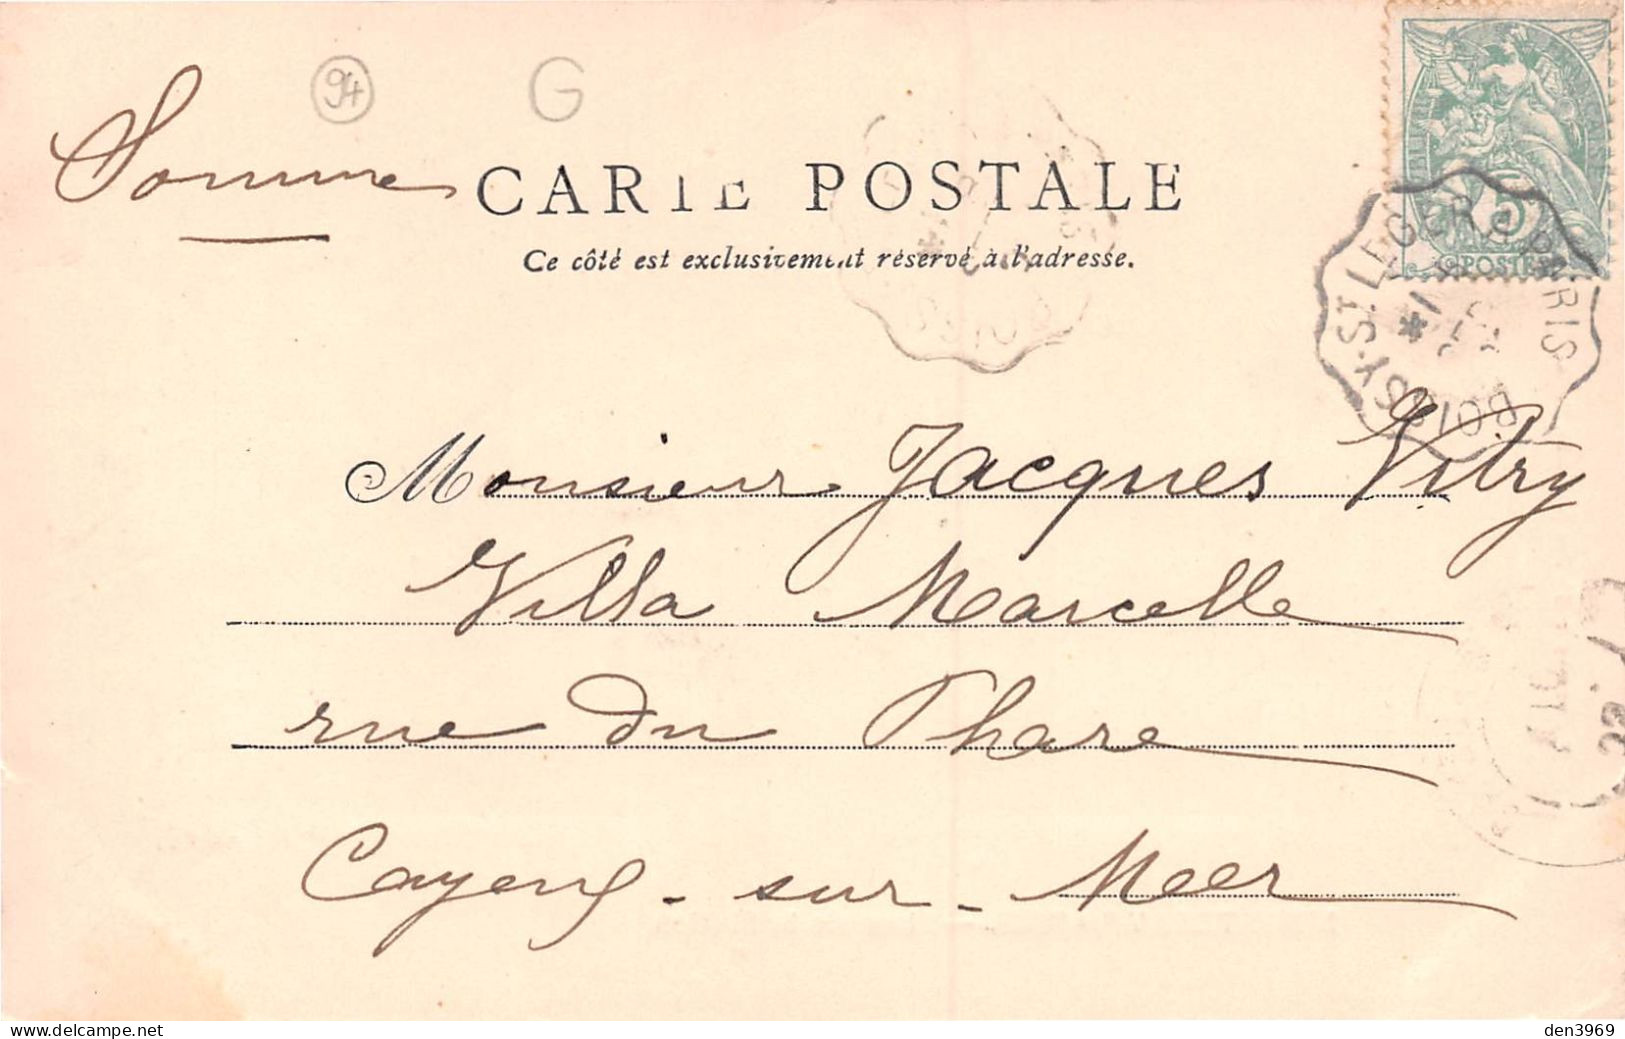 94 G
Somme
CARTE POSTALE
Ce côté est exclusivement réservé à l'adresse.
POSTES
5
BOISSY-ST LEGER A PARIS
Monsieur Jacques Vitry
Villa Marcelle
rue du Phare
Cayeux - sur - Mer
www.delcampe.net
den3969